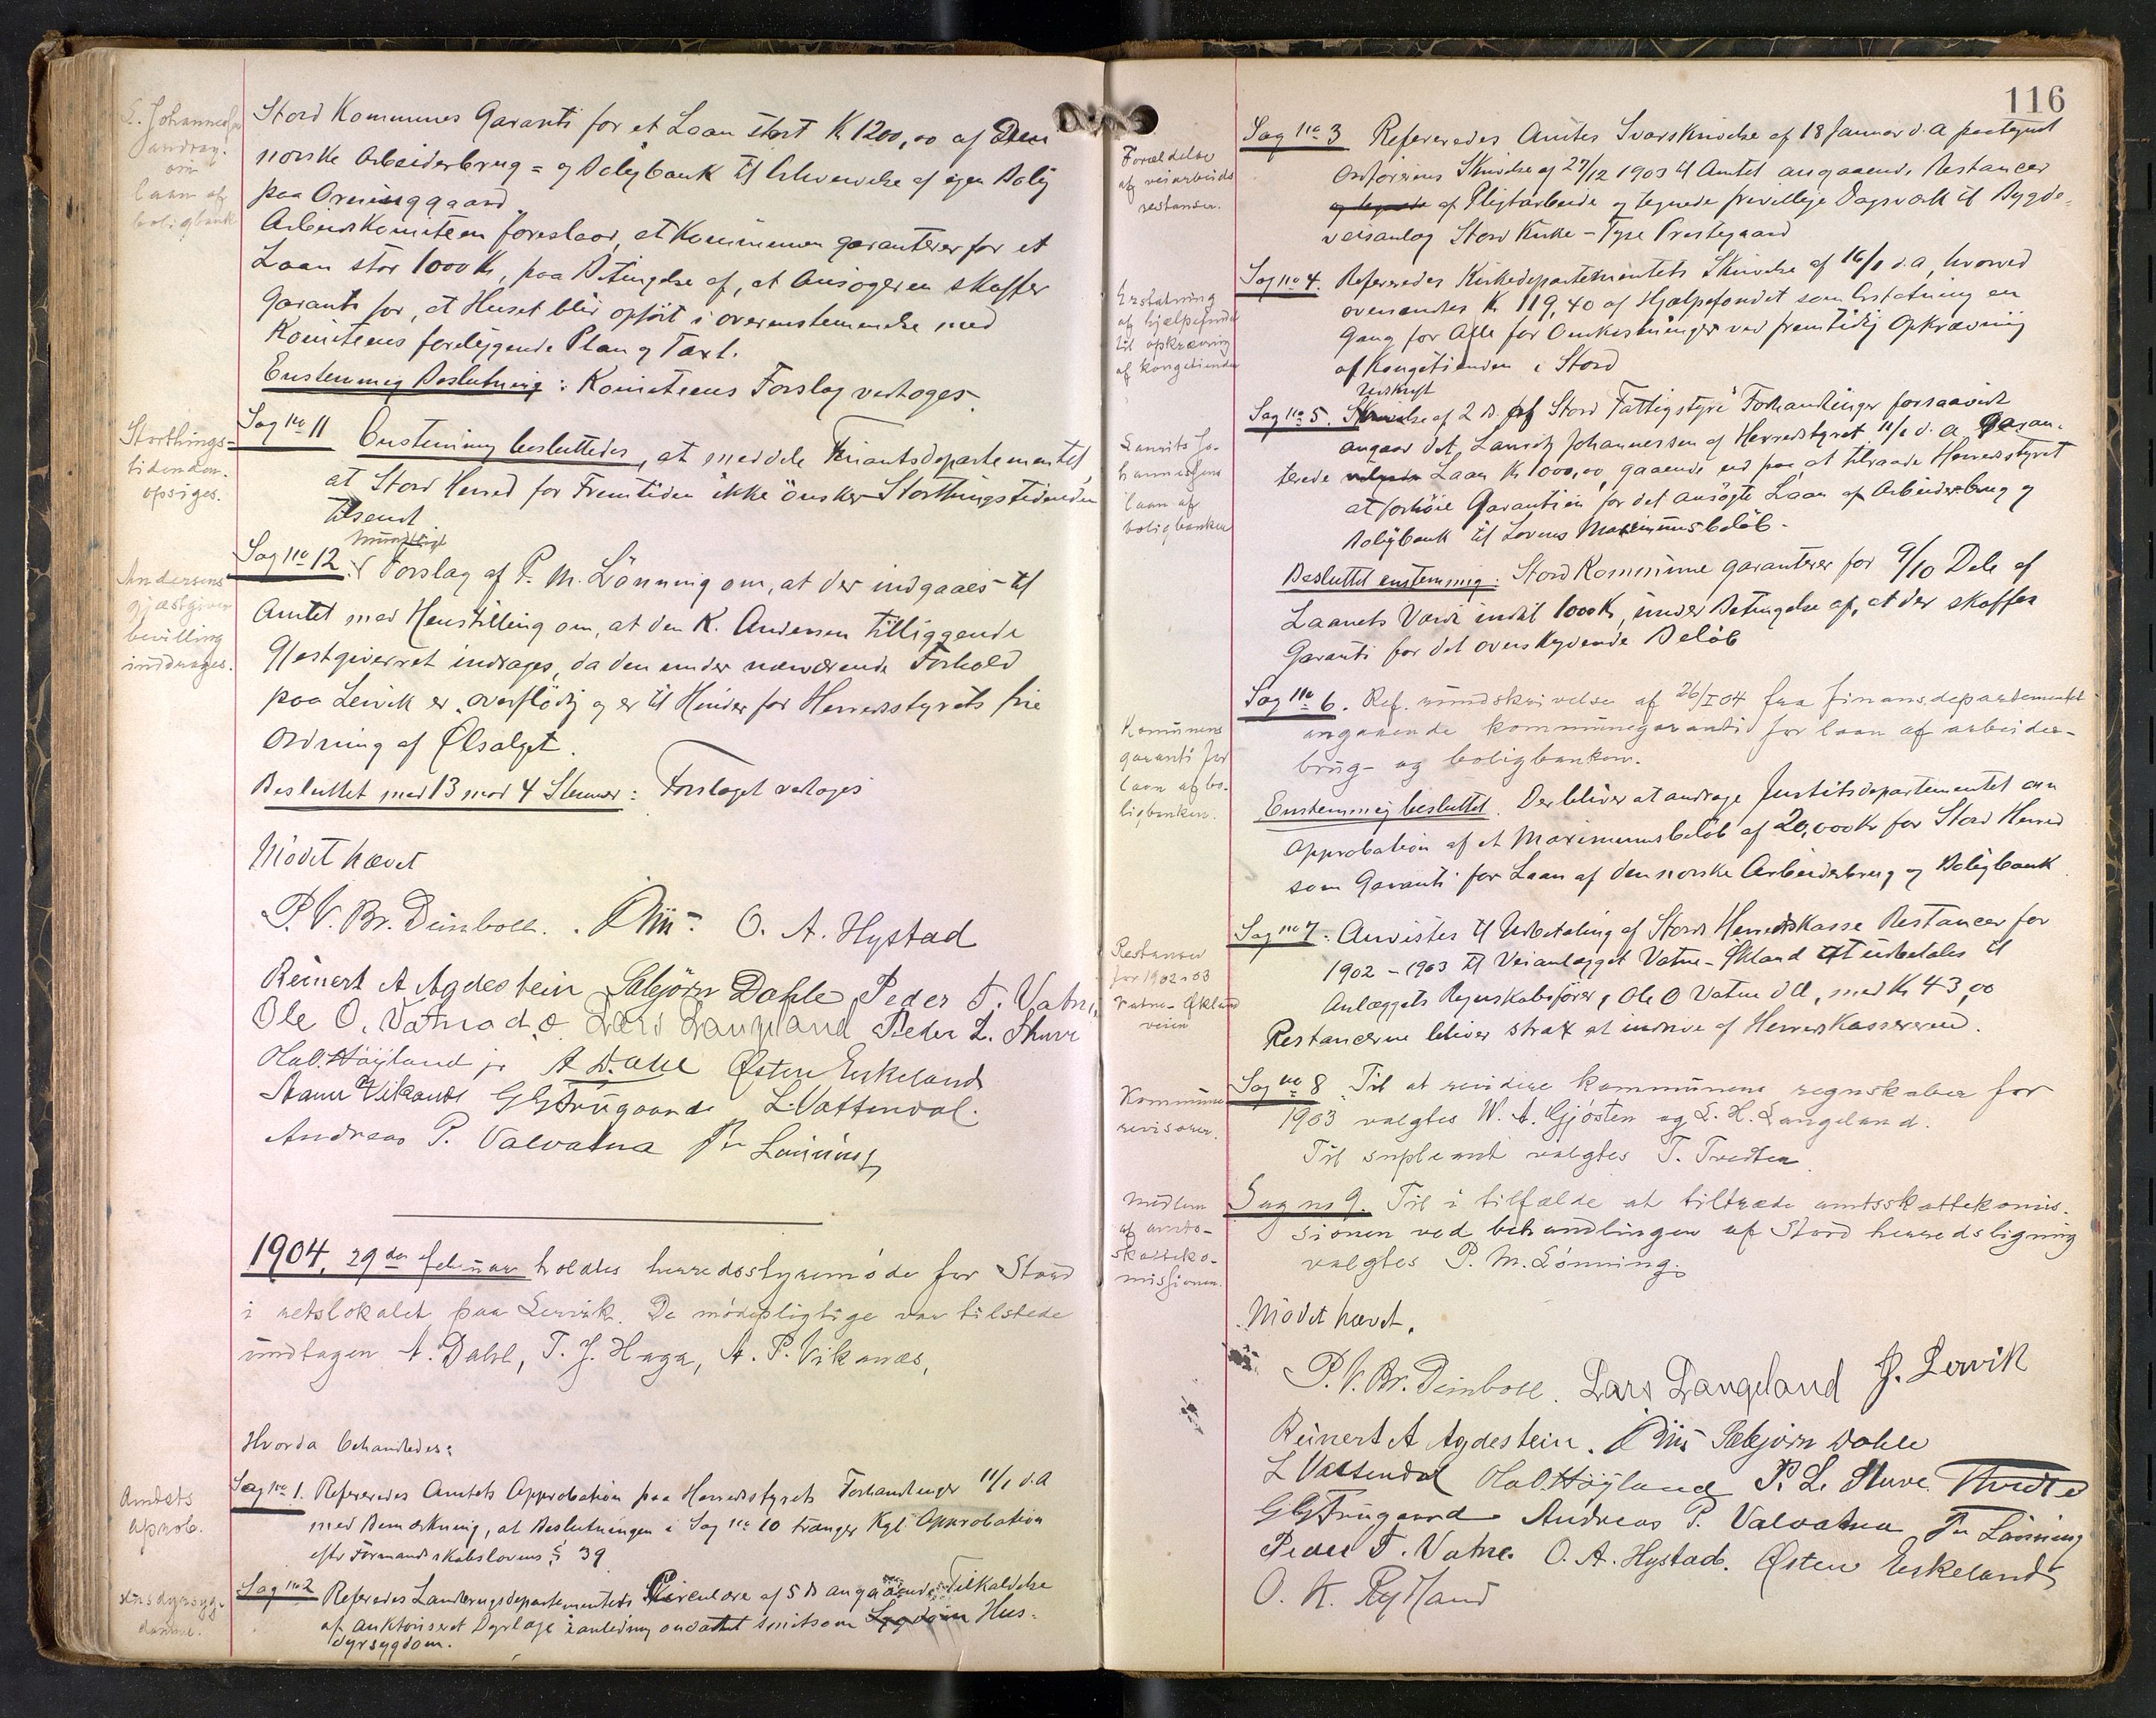 L. Johannesens
andrag.
om
laan af
boligbank
Stord Kommunes Garanti for et Laan stort K 1200,00 af Den
norske Arbeiderbrug= og Boligbank til Erhvervelse af egen Bolig
paa Orninggaard.
Arbeiderkomiteen foreslaar, at Kommunen garanterer for et
Laan stor 1000 K, paa Betingelse af, at Ansøgeren skaffer
Garanti for, at Huset blir opført i overenstemmelse med
Komiteens foreliggende Plan og Taxt.
Enstemmig Beslutning: Komiteens Forslag vedtoges.
Storthings-
tidenden
opsiges.
Sag No 11 Enstemmig besluttedes, at meddele Finantsdepartementet
at Stord Herred for Fremtiden ikke ønsker Storthingstidenden
tilsendt
Andersens
gjæstgiver
bevilling
inddrages.
mundtligt
Sag No 12: Forslag af P. M. Lönning om, at der indgaaes til
Amtet med Henstilling om, at den K. Andersen tilliggende
Gjestgiverret indrages, da den under nærværende Forhold
paa Leirvik er overflödig og er til Hinder for Herredsstyrets frie
Ordning af Ølsalget.
Besluttet med 13 mod 4 Stemmer: Forslaget vedtoges
Mödet hævet
P. V. Br. Deinboll. Riis. O. A. Hystad
Reinert A Agdestein Sæbjörn Dahle Peder T. Vatne,
Ole O. Vatna d.e. Lars Langeland Peder L. Stuve
Hal. Höyland jr A Dahl Østen Eskeland
Hann Vikanes G G Frugaard L. Vattendal.
Andreas P. Valvatna P M Lönning
1904, 29de februar holdtes herredsstyremöde for Stord
i retslokalet paa Lervik. De mødepligtige var tilstede
undtagen A. Dahl, T. J. Haga, A. P. Vikanæs,
Hvorda behandledes:
Amtets
aprob.
Sag No 1. Refereredes Amtets Approbation paa Herredsstyrets Forhandlinger 11/1 d. A
med Bemærkning, at Beslutningen i Sag No 10 trænger Kgl. Approbation
efter Formandskabslovens § 39
Husdyrsyg-
domme.
Sag No 2 Refereredes Landbrugsdepartementets Circulære af 5 ds angaaende Tilkaldelse
af auktoriseret Dyrlæge i anledning ondartet smitsom Sygdom Hus-
dyrsygdom.
116
Foræ­ldelse
af veiarbeids
restanser.
Sag No 3 Refereredes Amtes Svarskrivelse af 18 Januar d. A paategnet
Ordförerens Skrivelse af 27/12 1903 til Amtet angaaende Restancer
og tegnede af Pligtarbeide og tegnede frivillige Dagsværk til Bygde-
veisanlæg Stord Kirke - Tyse Prestegaard
Erstatning
af hjælpefondet
til opkræving
af kongetiende
Sag No 4. Refereredes Kirkedepartementets Skrivelse af 16/1 d. a, hvorved
oversendtes K 119,40 af Hjælpefondet som Erstatning en
Gang for Alle for Omkostninger ved fremtidig Opkrævning
af Kongetienden i Stord
Lauritz Jo-
hannesens
laan af
boligbanken
Udskrift
Sag No 5. Skrivelse af 2 ds. af Stord Fattigstyre's Forhandlinger forsaavidt
angaar det Lauritz Johannessen af Herredstyret 11/1 d. a. garan-
terede Laan K 1000,00, gaaende ud paa at tilraade Herredsstyret
at forhöie Garantien for det ansögte Laan af Arbeiderbrug og
Boligbank til Lovens Maximumsbelöb.
Besluttet enstemmig: Stord Kommune garanterer for 9/10 Dele af
Laanets Værdi indtil 1000 K, under Betingelse af, at der skaffes
Garanti for det overskydende Belöb
Komunens
garanti for
laan af bo-
ligbanken.
Sag No 6. Ref. rundskrivelse af 26/I 04 fra finansdepartementet
angaaende kommunegaranti for laan af arbeider-
brug- og boligbanken.
Enstemmig besluttet. Der bliver at andrage Justitsdepartementet om
Approbation af et Maximumsbelöb af 20,000 K for Stord Herred
som Garanti for Laan af den norske Arbeiderbrug og Boligbank
Restanser
for 1902-03
Vatne-Økland
veien
Sag No 7. Anvistes til Udbetaling af Stord Herredskasse Restancer for
1902 - 1903 til Veianlægget Vatne-Økland at udbetales til
Anlæggets Regnskabsfører, Ole O Vatne d æ, med K 43,00
Restancerne bliver strax at inddrive af Herredskassereren.
Kommune
revisorer.
Sag No 8. Til at revidere kommunens regnskaber for
1903 valgtes W. A. Gjøsten og L. H. Langeland.
Til supleant valgtes T. Tvedten.
Medlem
af amts-
skatteko-
missionen.
Sag no 9. Til i tilfælde at tiltræde amtsskattekomis-
sionen ved behandlingen af Stord herredsligning
valgtes P. M. Lönning.
Mödet hævet.
P. V. Br. Deinboll. Lars Langeland J. Lervik
Reinert A Agdestein. Riis Sæbjörn Dahle
L Vattendal Hal Höyland P. L. Stuve Tvedte
G G Frugaard Andreas P. Valvatna P M Lönning
Peder T. Vatne. O. A. Hystad. Østen Eskeland
O. K. Rydland